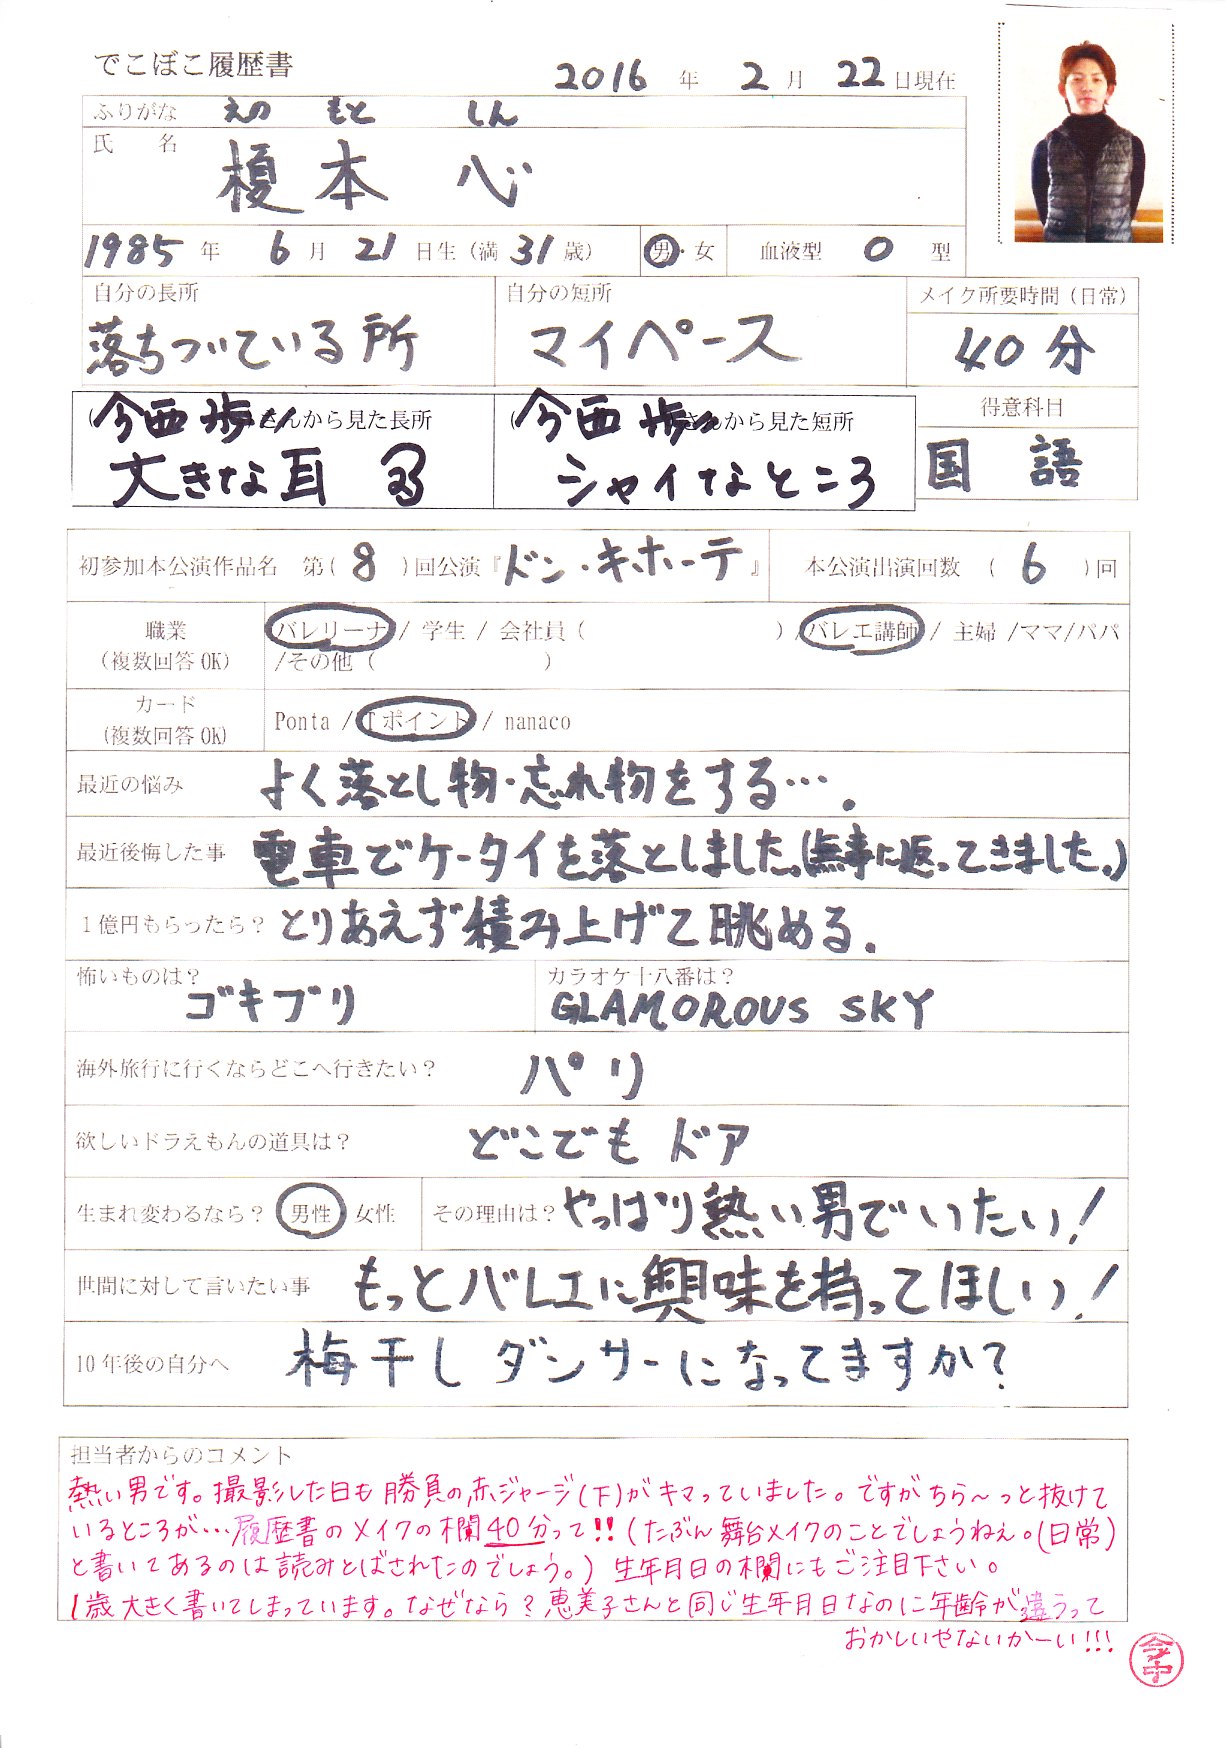 でこぼこ履歴書
2016 年 2 月 22 日現在
ふりがな えの もと しん
氏 名 榎本 心
1985 年 6 月 21 日生(満 31 歳) 男・女 血液型 O 型
自分の長所 自分の短所 メイク所要時間(日常)
落ちついている所 マイペース 40分
(今西歩さんから見た長所 (今西歩さんから見た短所 得意科目
大きな耳 シャイなところ 国語
初参加本公演作品名 第(8)回公演『ドン・キホーテ』 本公演出演回数 (6)回
職業 バレリーナ / 学生 / 会社員( ) /バレエ講師 / 主婦 /ママ/パパ
(複数回答OK) /その他( )
カード
(複数回答OK) Ponta / Tポイント / nanaco
最近の悩み よく落とし物・忘れ物をする…。
最近後悔した事 電車でケータイを落としました。(無事に返ってきました。)
1億円もらったら? とりあえず積み上げて眺める。
怖いものは? カラオケ十八番は?
ゴキブリ GLAMOROUS SKY
海外旅行に行くならどこへ行きたい? パリ
欲しいドラえもんの道具は? どこでもドア
生まれ変わるなら? 男性・女性 その理由は? やっぱり熱い男でいたい!
世間に対して言いたい事 もっとバレエに興味を持ってほしい!
10年後の自分へ 梅干しダンサーになってますか?
担当者からのコメント
熱い男です。撮影した日も勝負の赤ジャージ(下)がキマっていました。ですがちら〜っと抜けて
いるところが…履歴書のメイクの欄40分って!!(たぶん舞台メイクのことでしょうねぇ。(日常)
と書いてあるのは読みとばされたのでしょう。) 生年月日の欄にもご注目下さい。
1歳大きく書いてしまっています。なぜなら?恵美子さんと同じ生年月日なのに年齢が違うって
おかしいやないかーい!!!
今中